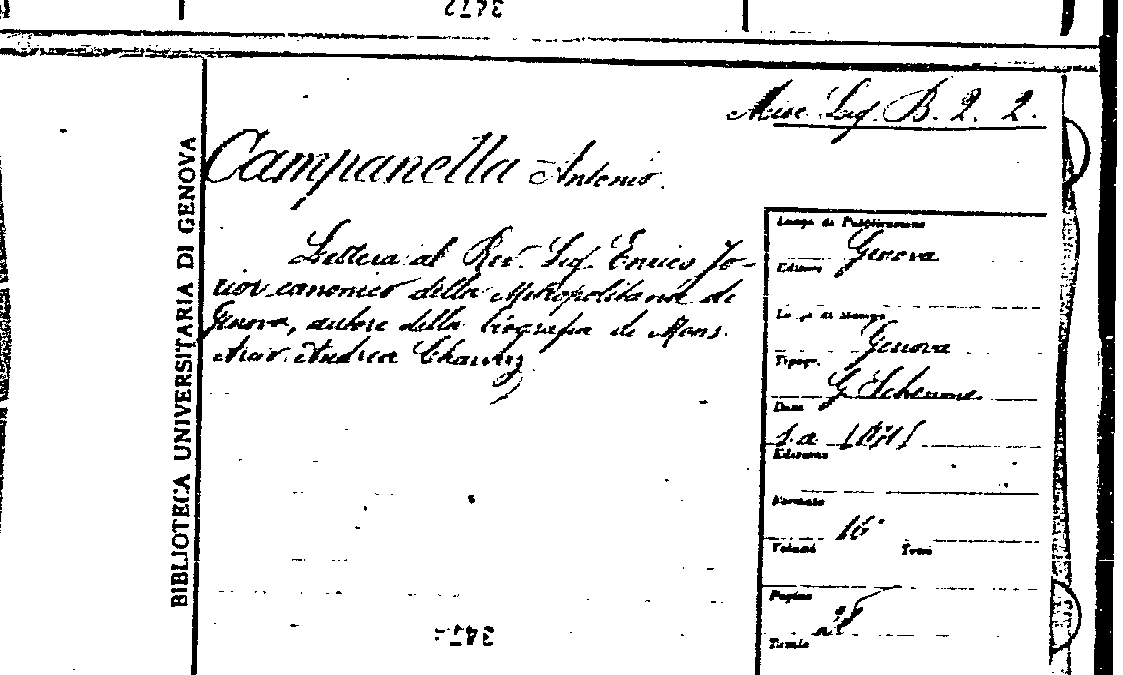 3472
Misc. Lig. B. 2. 2.
BIBLIOTECA UNIVERSITARIA DI GENOVA
Campanella Antonio.
Lettera al Rev. Sig. Enrico Jo-
rior canonico della Metropolitana di
Genova, autore della biografia di Mons.
Andrea Charvaz
Luogo di Pubblicazione
Genova
Editore
Luogo di Stampa
Genova
Tipogr.
G. Schenone
Data
s.a
Edizione
Formato
16°
Volumi Tomi
Pagine
Tavole